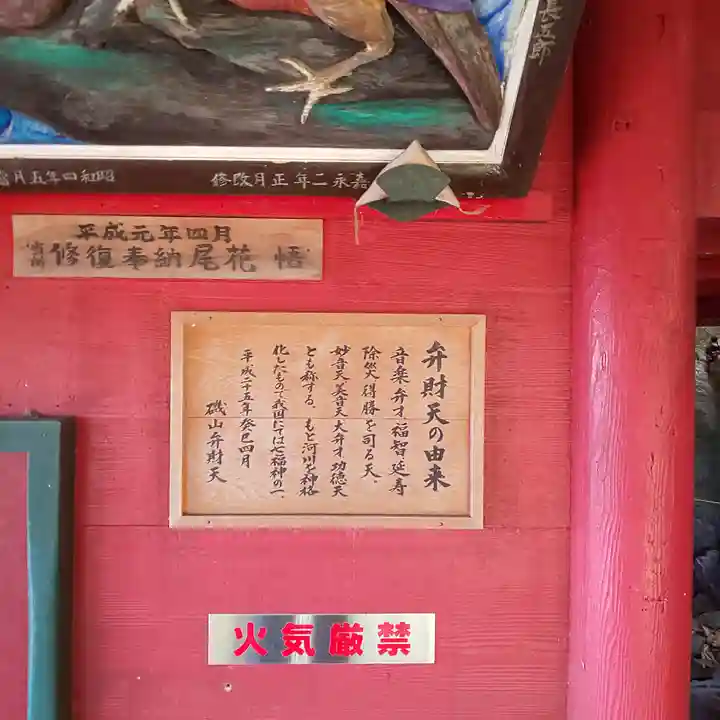 長五郎
嘉永二年正月改修
昭和四年五月
平成元年四月
修復奉納尾花 悟
弁財天の由来
音楽弁才福智延寿
除災得勝を司る天。
妙音天美音天大弁才功徳天
とも称する。もと河川を神格
化したもので我国にては七福神の一。
平成二十五年癸巳四月
磯山弁財天
火気厳禁